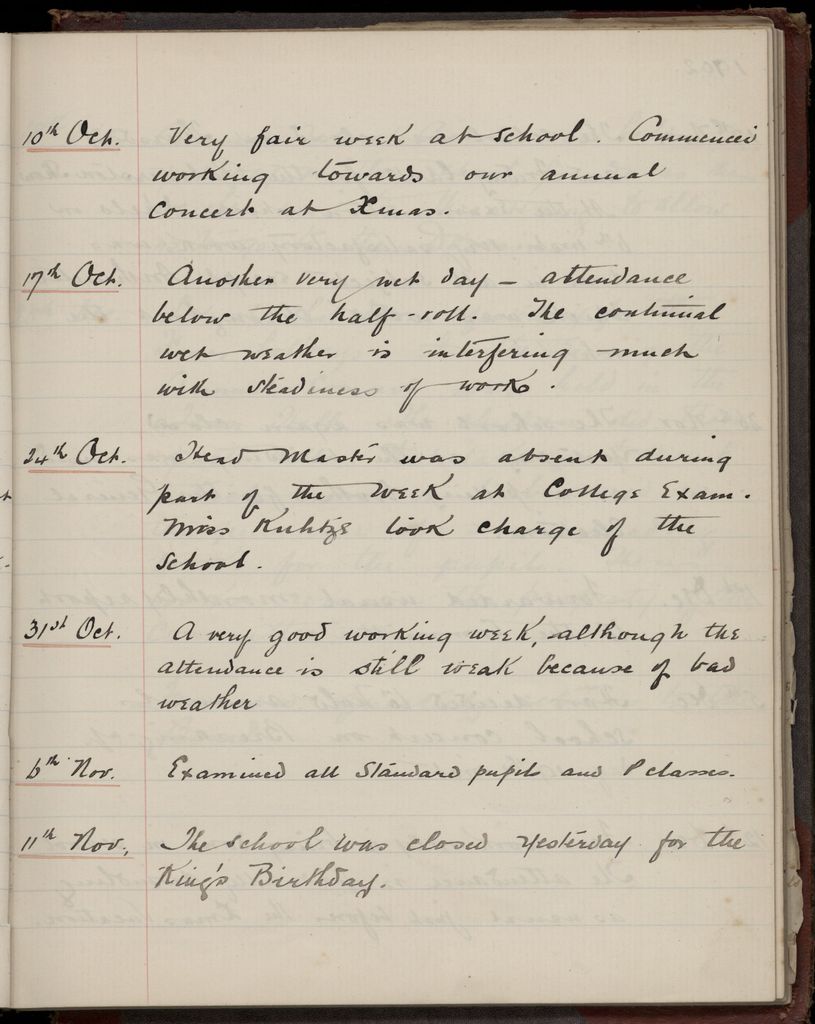 10th Oct. Very fair week at school. Commenced
working towards our annual
concert at Xmas.
17th Oct. Another very wet day – attendance
below the half-roll. The continual
wet weather is interfering much
with steadiness of work.
24th Oct. Head Master was absent during
part of the week at College Exam.
Miss Kuhtze took charge of the
School.
31st Oct. A very good working week, although the
attendance is still weak because of bad
weather
6th Nov. Examined all Standard pupils and P classes.
11th Nov. The school was closed yesterday for the
King's Birthday.